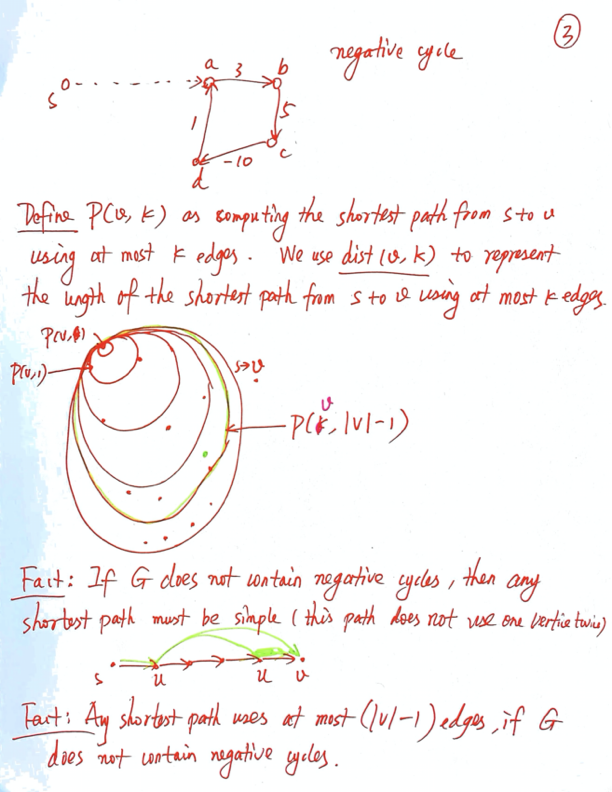 3
negative cycle
s
a 3 b
1
5
c
-10
d
Define P(v, k) as computing the shortest path from s to v
using at most k edges. We use dist(v, k) to represent
the length of the shortest path from s to v using at most k edges.
P(v,0)
P(v,1)
s→v
v
P(k, |V|-1)
Fact: If G does not contain negative cycles, then any
shortest path must be simple (this path does not use one vertie twice)
s u u v
Fact: Any shortest path uses at most (|V|-1) edges, if G
does not contain negative cycles.